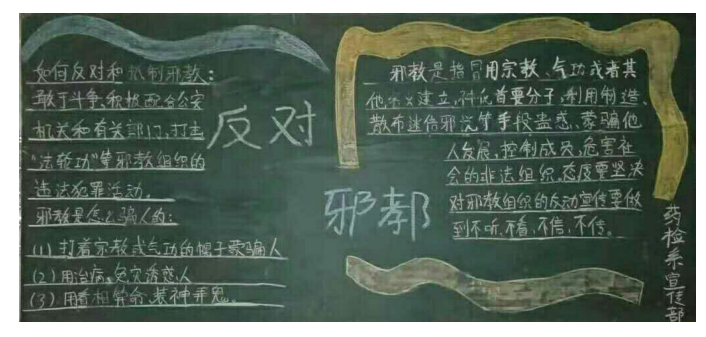 如何反对和抵制邪教：
敢于斗争，积极配合公安
机关和有关部门，打击
“法轮功”等邪教组织的
违法犯罪活动。
邪教是怎么骗人的：
(1) 打着宗教或气功的幌子蒙骗人
(2) 用治病、免灾诱惑人
(3) 用看相算命、装神弄鬼。
反对
邪教
邪教是指冒用宗教、气功或者其
他名义建立，神化首要分子，利用制造、
散布迷信邪说等手段蛊惑、蒙骗他
人发展，控制成员，危害社
会的非法组织，态度要坚决
对邪教组织的反动宣传要做
到不听、不看、不信、不传。
药检系宣传部